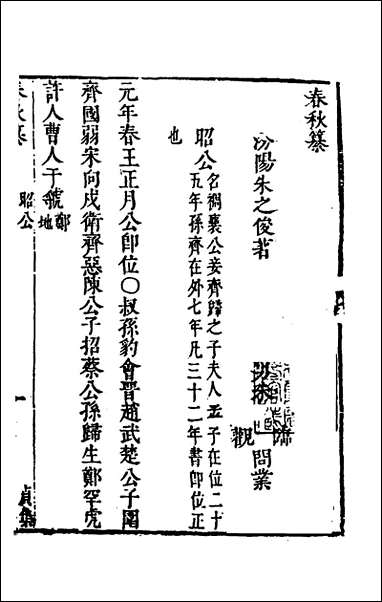 春秋纂
汾陽朱之俊著
觀 問業
昭公
名裯襄公妾齊歸之子夫人孟子在位二十
五年孫齊在外七年凡三十二年書卽位正
也
元年春王正月公卽位〇叔孫豹會晉趙武楚公子圍
齊國弱宋向戌衛齊惡陳公子招蔡公孫歸生鄭罕虎
許人曹人于虢鄭地
春秋纂 昭公 一 貞集